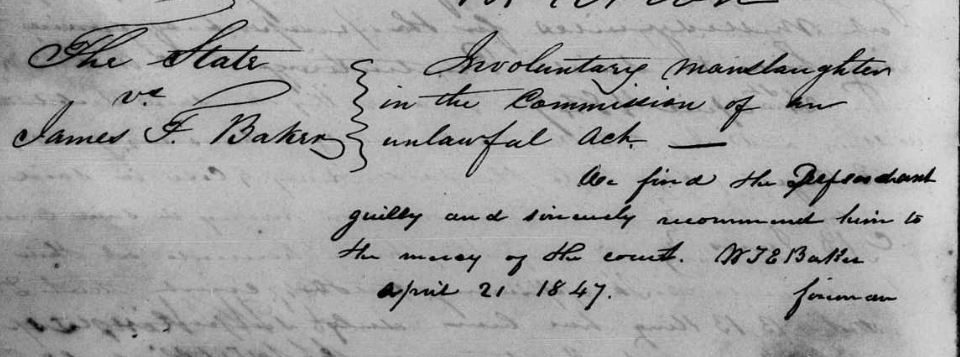 The State
vs
James F. Baker
Involuntary manslaughter
in the Commission of an
unlawful Act. —
We find the Defendant
guilty and sincerely recommend him to
the mercy of the court. W T E Baker
April 21 1847.
foreman